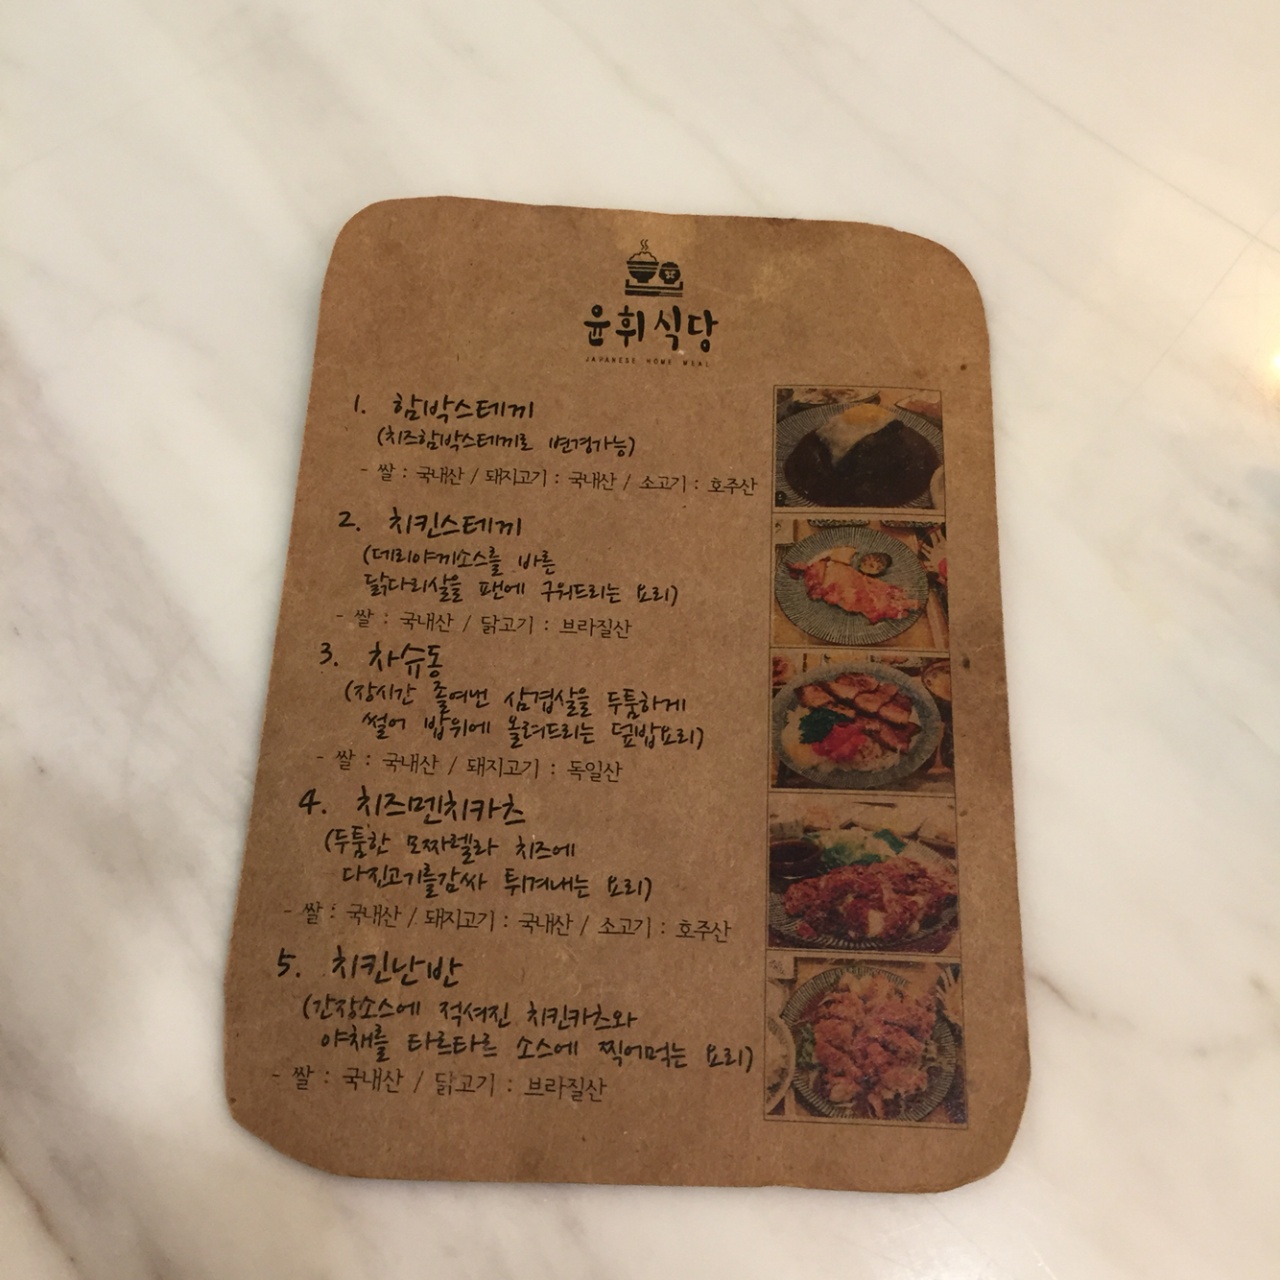 윤휘식당
JAPANESE HOME MEAL
1. 함박스테끼
(치즈함박스테끼로 변경가능)
- 쌀 : 국내산 / 돼지고기 : 국내산 / 소고기 : 호주산
2. 치킨스테끼
(데리야끼소스를 바른
닭다리살을 팬에 구워드리는 요리)
- 쌀 : 국내산 / 닭고기 : 브라질산
3. 차슈동
(장시간 졸여낸 삼겹살을 두툼하게
썰어 밥위에 올려드리는 덮밥요리)
- 쌀 : 국내산 / 돼지고기 : 독일산
4. 치즈멘치카츠
(두툼한 모짜렐라 치즈에
다진고기를감싸 튀겨내는 요리)
- 쌀 : 국내산 / 돼지고기 : 국내산 / 소고기 : 호주산
5. 치킨난반
(간장소스에 적셔진 치킨카츠와
야채를 타르타르 소스에 찍어먹는 요리)
- 쌀 : 국내산 / 닭고기 : 브라질산